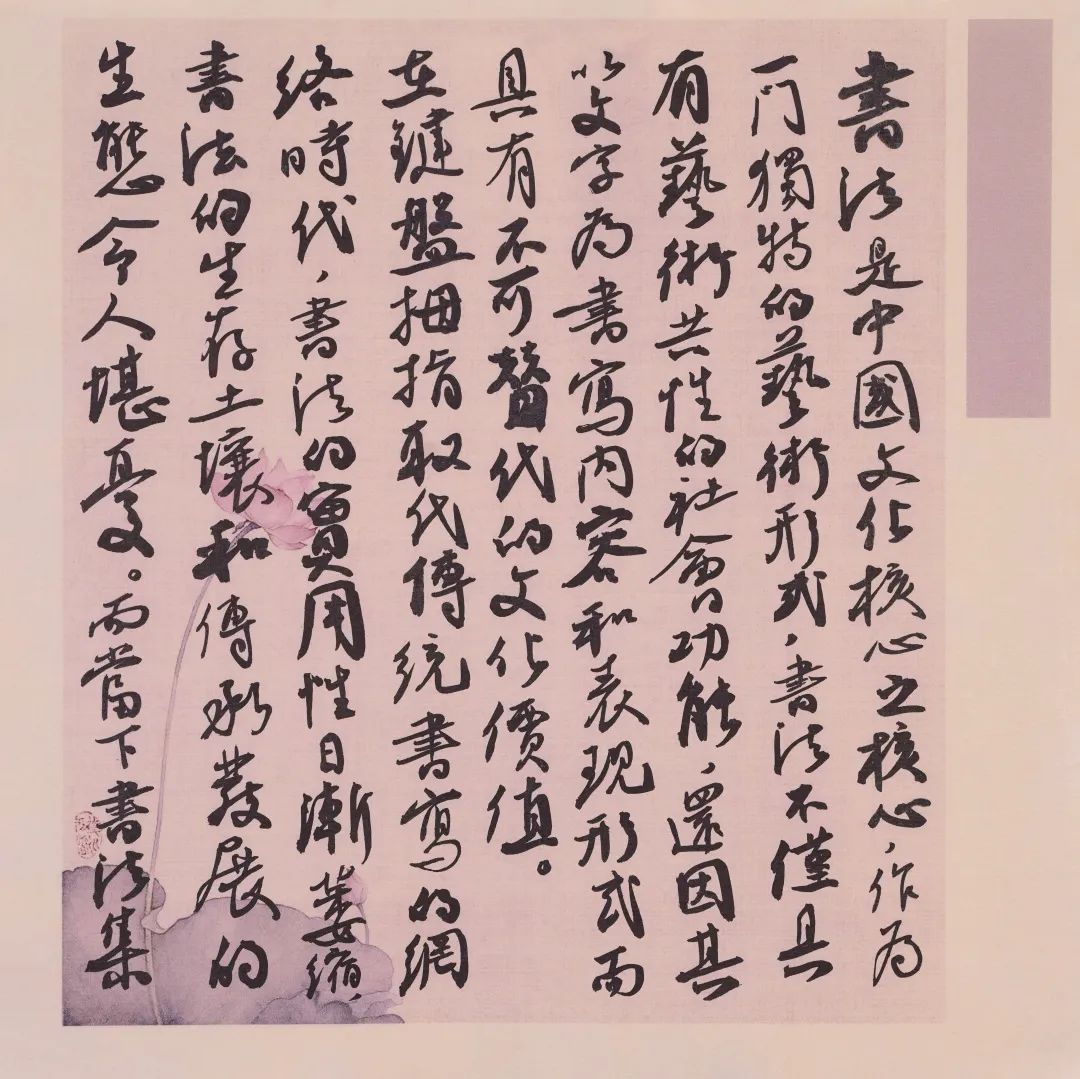 書法是中國文化核心之核心，作為
一門獨特的藝術形式，書法不僅具
有藝術共性的社會功能，還因其
以文字為書寫内容和表現形式而
具有不可替代的文化價值。
在鍵盤拇指取代傳統書寫的網
絡時代，書法的實用性日漸萎縮，
書法的生存土壤和傳承發展的
生態令人堪憂。而當下書法集